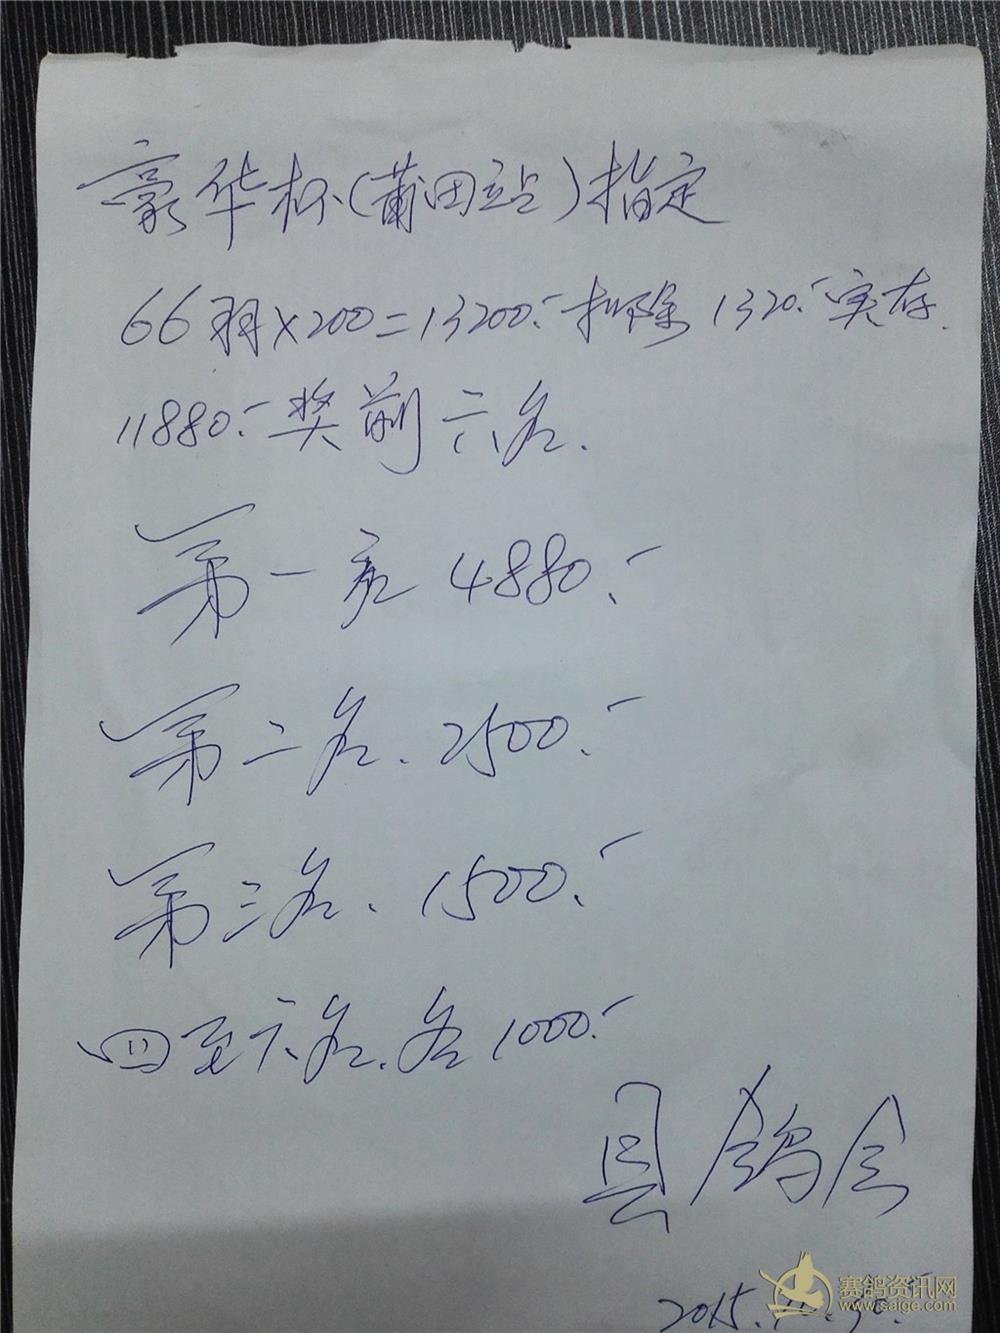 豪华杯(莆田站)指定
66羽×200=13200.- 扣除1320.- 实存
11880.- 奖前六名.
第一名 4880.-
第二名. 2500.-
第三名. 1500.-
四至六名. 各1000.-
县鸽会
2015.11.
赛鸽资讯网
www.saige.com